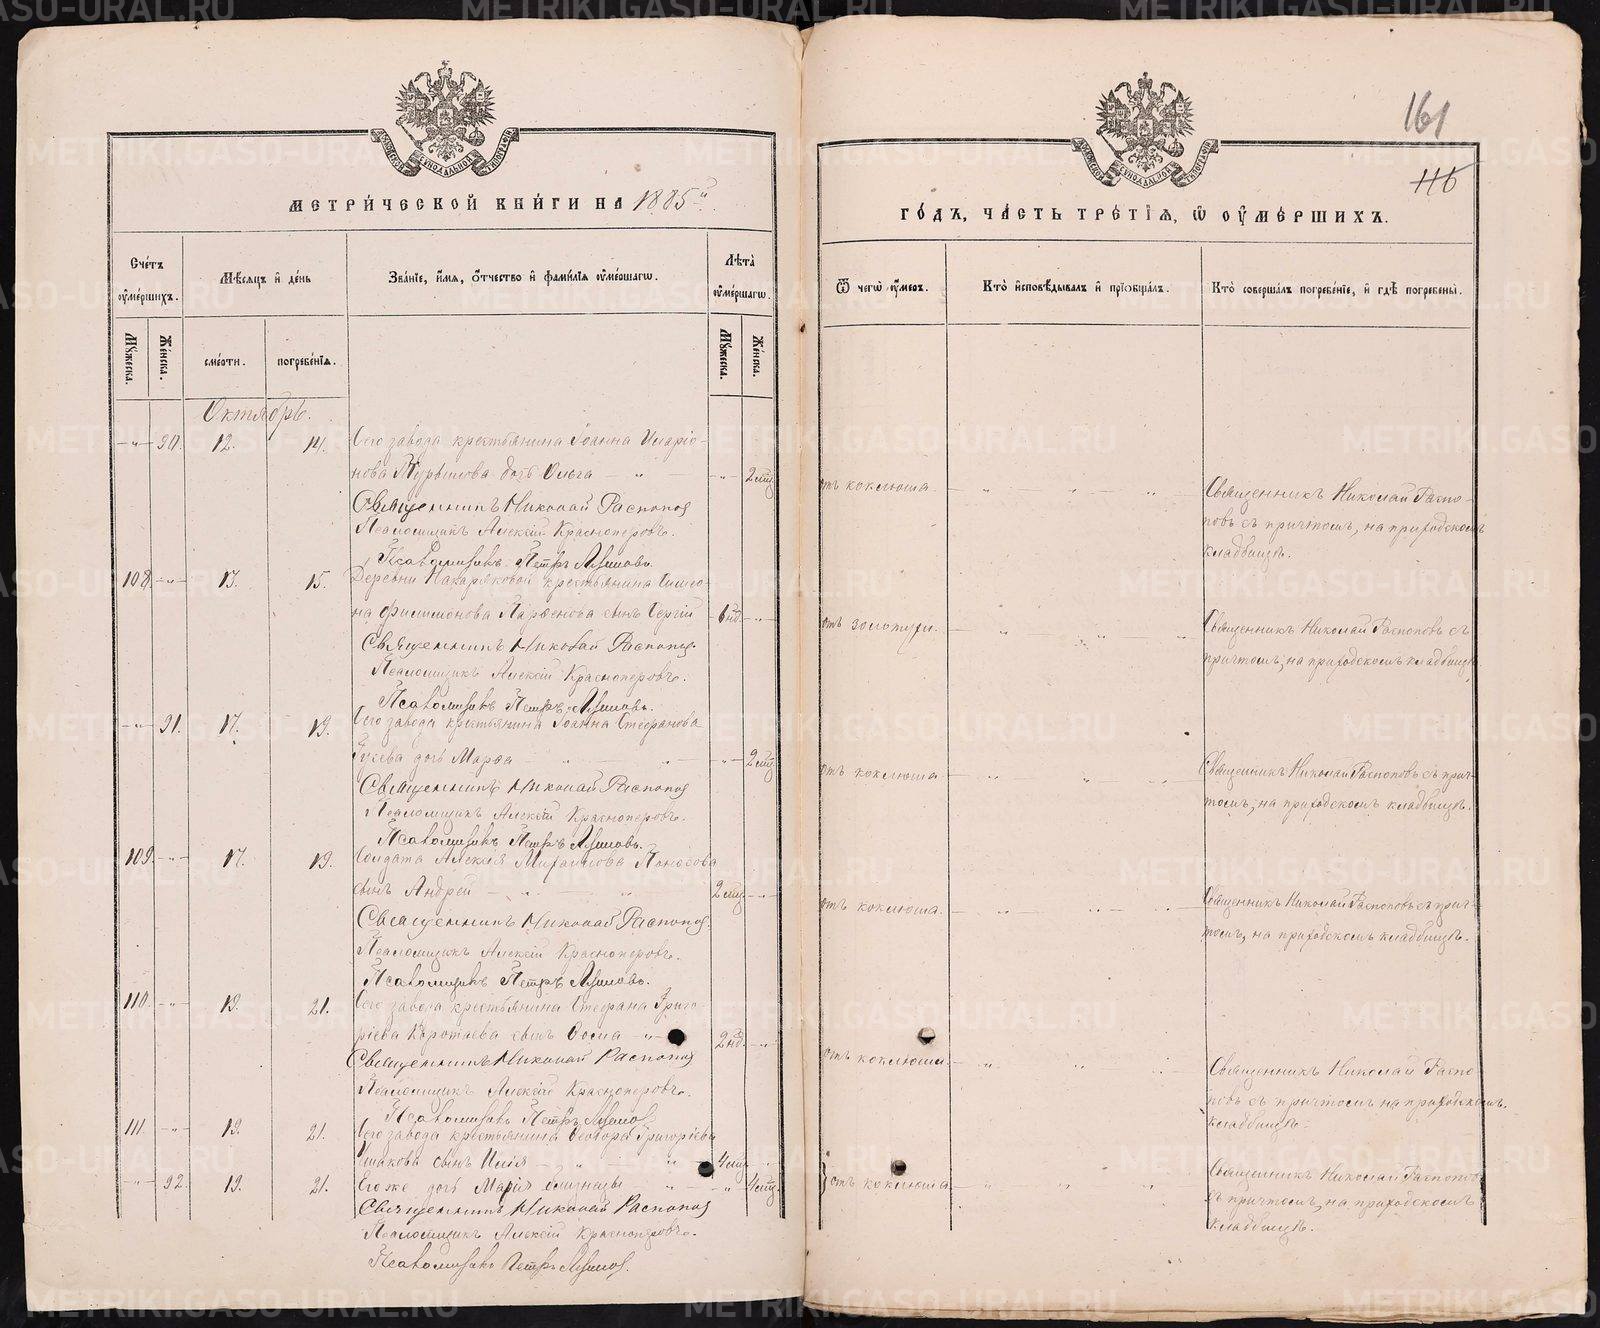 МЕТРИ́ЧЕСКОЙ КНИ́ГИ НА 1885й
Сче́тъ ᲂу҆ме́ршихъ.
Мѣ́сяцъ и҆ де́нь
Зва́нїе, и҆́мя, ѻ҆́тчество и҆ фами́лїя ᲂу҆ме́ршагѡ.
Лѣ́та ᲂу҆ме́ршагѡ.
Мꙋ́жеска.
Же́нска.
сме́рти.
погребе́нїя.
Мꙋ́жеска.
Же́нска.
Октябрь.
-„- 90. 12. 14. Сего завода крестьянина Іоанна Иларіо-
нова дочь Ольга - „ - -„- 2 мѣц.
Священникъ Николай Распопов
Псаломщикъ Алексій Красноперовъ.
Псаломщикъ Петръ
108. -„- 13. 15. Деревни крестьянина Симео-
на Филимонова Парфенова сынъ Сергій 6 нд. -„-
Священникъ Николай Распопов.
Псаломщикъ Алексій Красноперовъ.
Псаломщикъ Петръ
-„- 91. 17. 19. Сего завода крестьянина Іоанна Стефанова
дочь Марѳа - „ „ -„- 2 мѣц.
Священникъ Николай Распопов
Псаломщикъ Алексій Красноперовъ.
Псаломщикъ Петръ
109. -„- 17. 19. Солдата Алексія Михаилова
сынъ Андрей - „ - „ 2 мѣц. -„-
Священникъ Николай Распопов.
Псаломщикъ Алексій Красноперовъ.
Псаломщикъ Петръ
110. -„- 19. 21. Сего завода крестьянина Стефана Григо-
ріева Коротаева сынъ Ѳома - „ - 2 нд. -„-
Священникъ Николай Распопов
Псаломщикъ Алексій Красноперовъ.
Псаломщикъ Петръ
111. -„- 19. 21. Сего завода крестьянина Ѳеодора Григоріева
Ушакова сынъ Илія - „ - „ 4 мѣц. „
-„- 92. 19. 21. Его же дочь Марія близнецы - „ - „ - 4 мѣц.
Священникъ Николай Распопов
Псаломщикъ Алексій Красноперовъ.
Псаломщикъ Петръ
161
116
ГО́ДЪ, ЧА́СТЬ ТРЕ́ТЇЯ, Ѡ҆ ᲂУ҆МЕ́РШИХЪ.
Ѿ чегѡ̀ ᲂу҆́меръ.
Кто̀ и҆сповѣ́дывалъ и҆ прїѡбща́лъ.
Кто̀ соверша́лъ погребе́нїе, и҆ гдѣ̀ погребены̀.
отъ коклюша - „ „ „ - Священникъ Николай Распо-
повъ съ причтомъ, на приходскомъ
кладбищѣ.
отъ золотухи. - „ „ - „ Священникъ Николай Распоповъ съ
причтомъ, на приходскомъ кладбищѣ.
отъ коклюша - „ „ „ Священникъ Николай Распоповъ съ прич-
томъ, на приходскомъ кладбищѣ.
отъ коклюша. - „ „ „ Священникъ Николай Распоповъ съ прич-
томъ, на приходскомъ кладбищѣ.
отъ коклюша. - „ „ Священникъ Николай Распо
повъ съ причтомъ на приходскомъ.
кладбищѣ.
отъ коклюша - „ „ „ Священникъ Николай Распоповъ
съ причтомъ, на приходскомъ
кладбищѣ.
METRIKI.GASO-URAL.RU